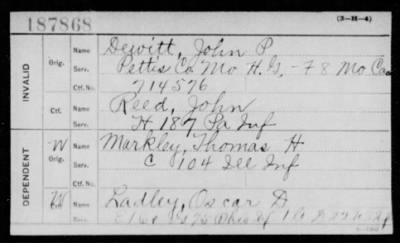 187868
(3-H-4)
INVALID
Orig. Name Dewitt, John P
Serv. Pettis Co Mo H. G. - 7 8 Mo Cav
Ctf. No. 714576
Ctf. Name Reed, John
Serv. H 187 Pa Inf
DEPENDENT
W Orig. Name Markley, Thomas H
Serv. C 104 Ill Inf
Ctf. No.
W Ctf. Name Ladley, Oscar D
Serv.